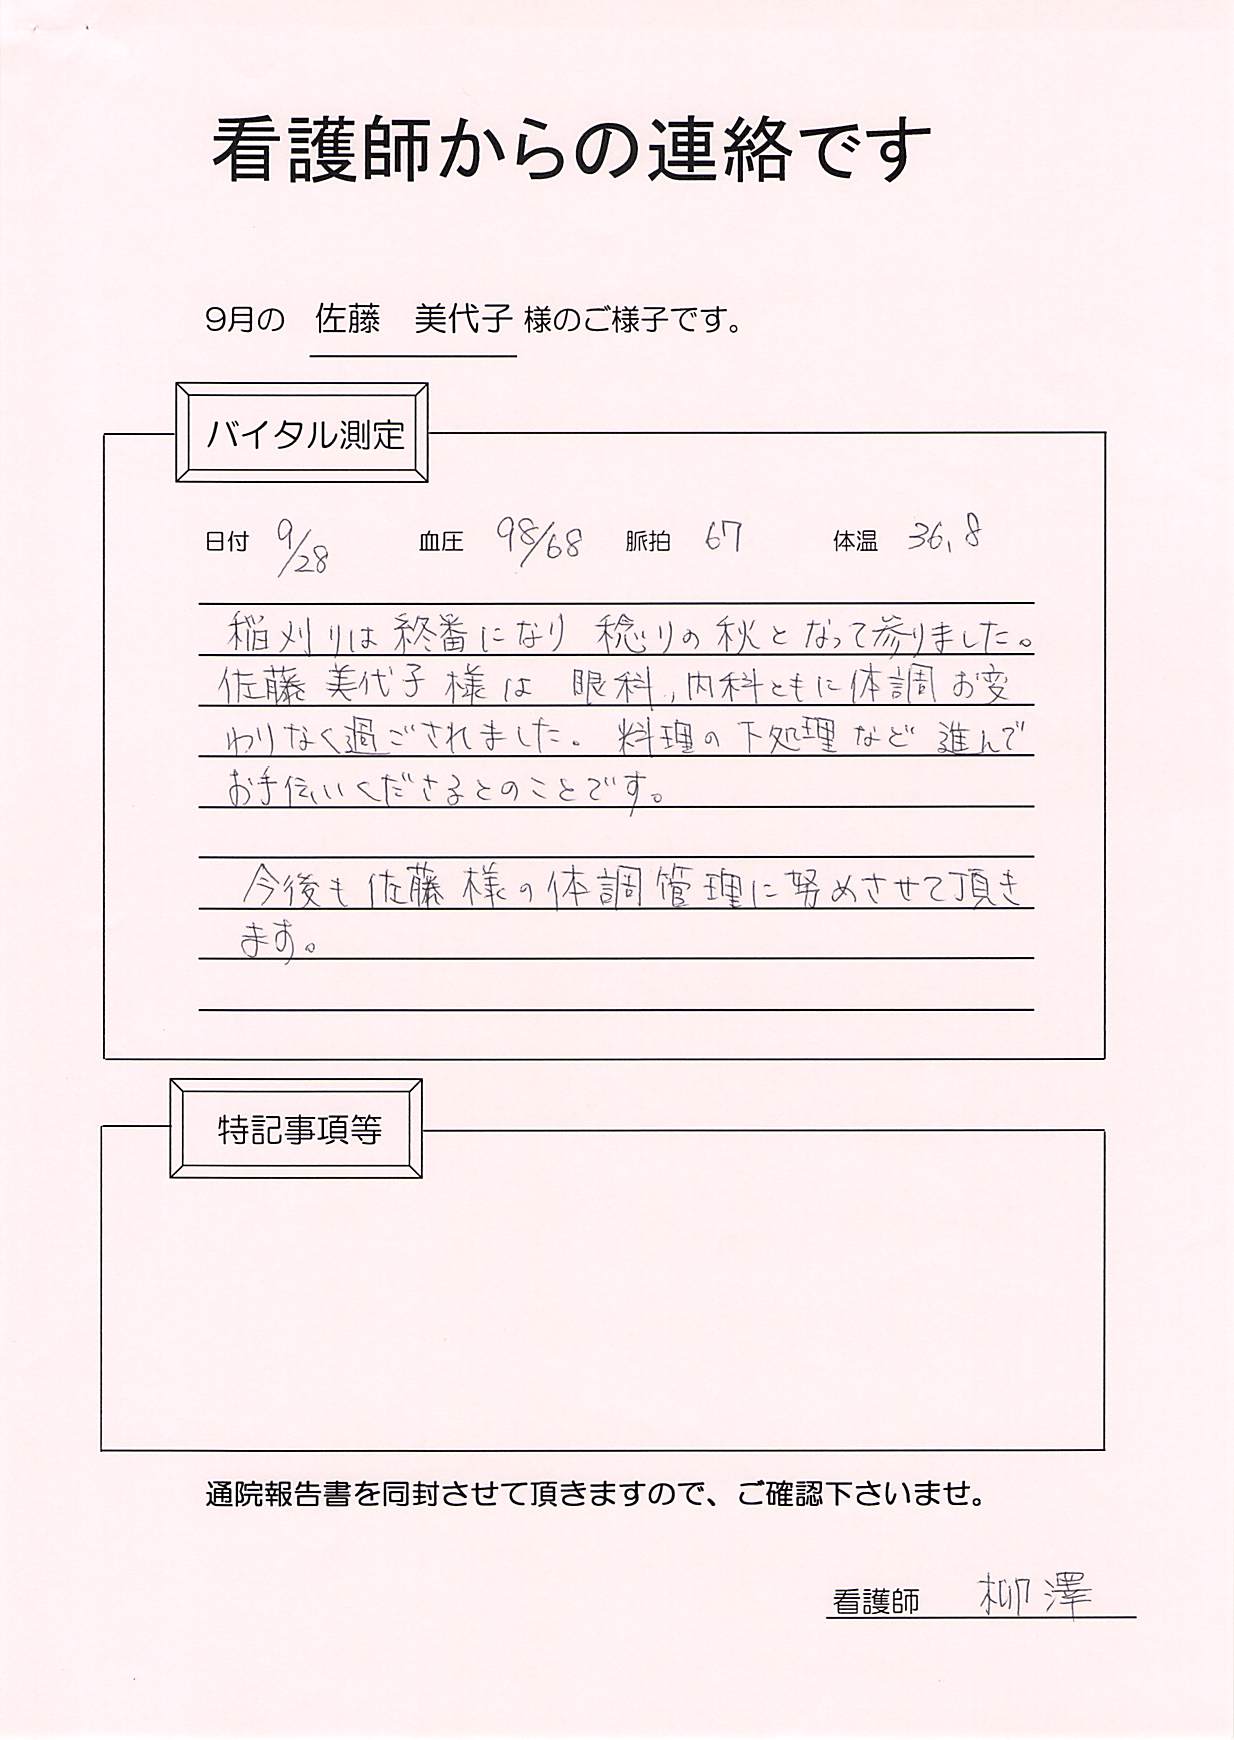 看護師からの連絡です
9月の 佐藤 美代子 様のご様子です。
バイタル測定
日付 9/28 血圧 98/68 脈拍 67 体温 36.8
稲刈りは終番になり 稔りの秋となって参りました。
佐藤 美代子様は 眼科,内科ともに体調お変
わりなく過ごされました。料理の下処理など 進んで
お手伝いくださるとのことです。
今後も佐藤様の体調管理に努めさせて頂き
ます。
特記事項等
通院報告書を同封させて頂きますので、ご確認下さいませ。
看護師 柳澤